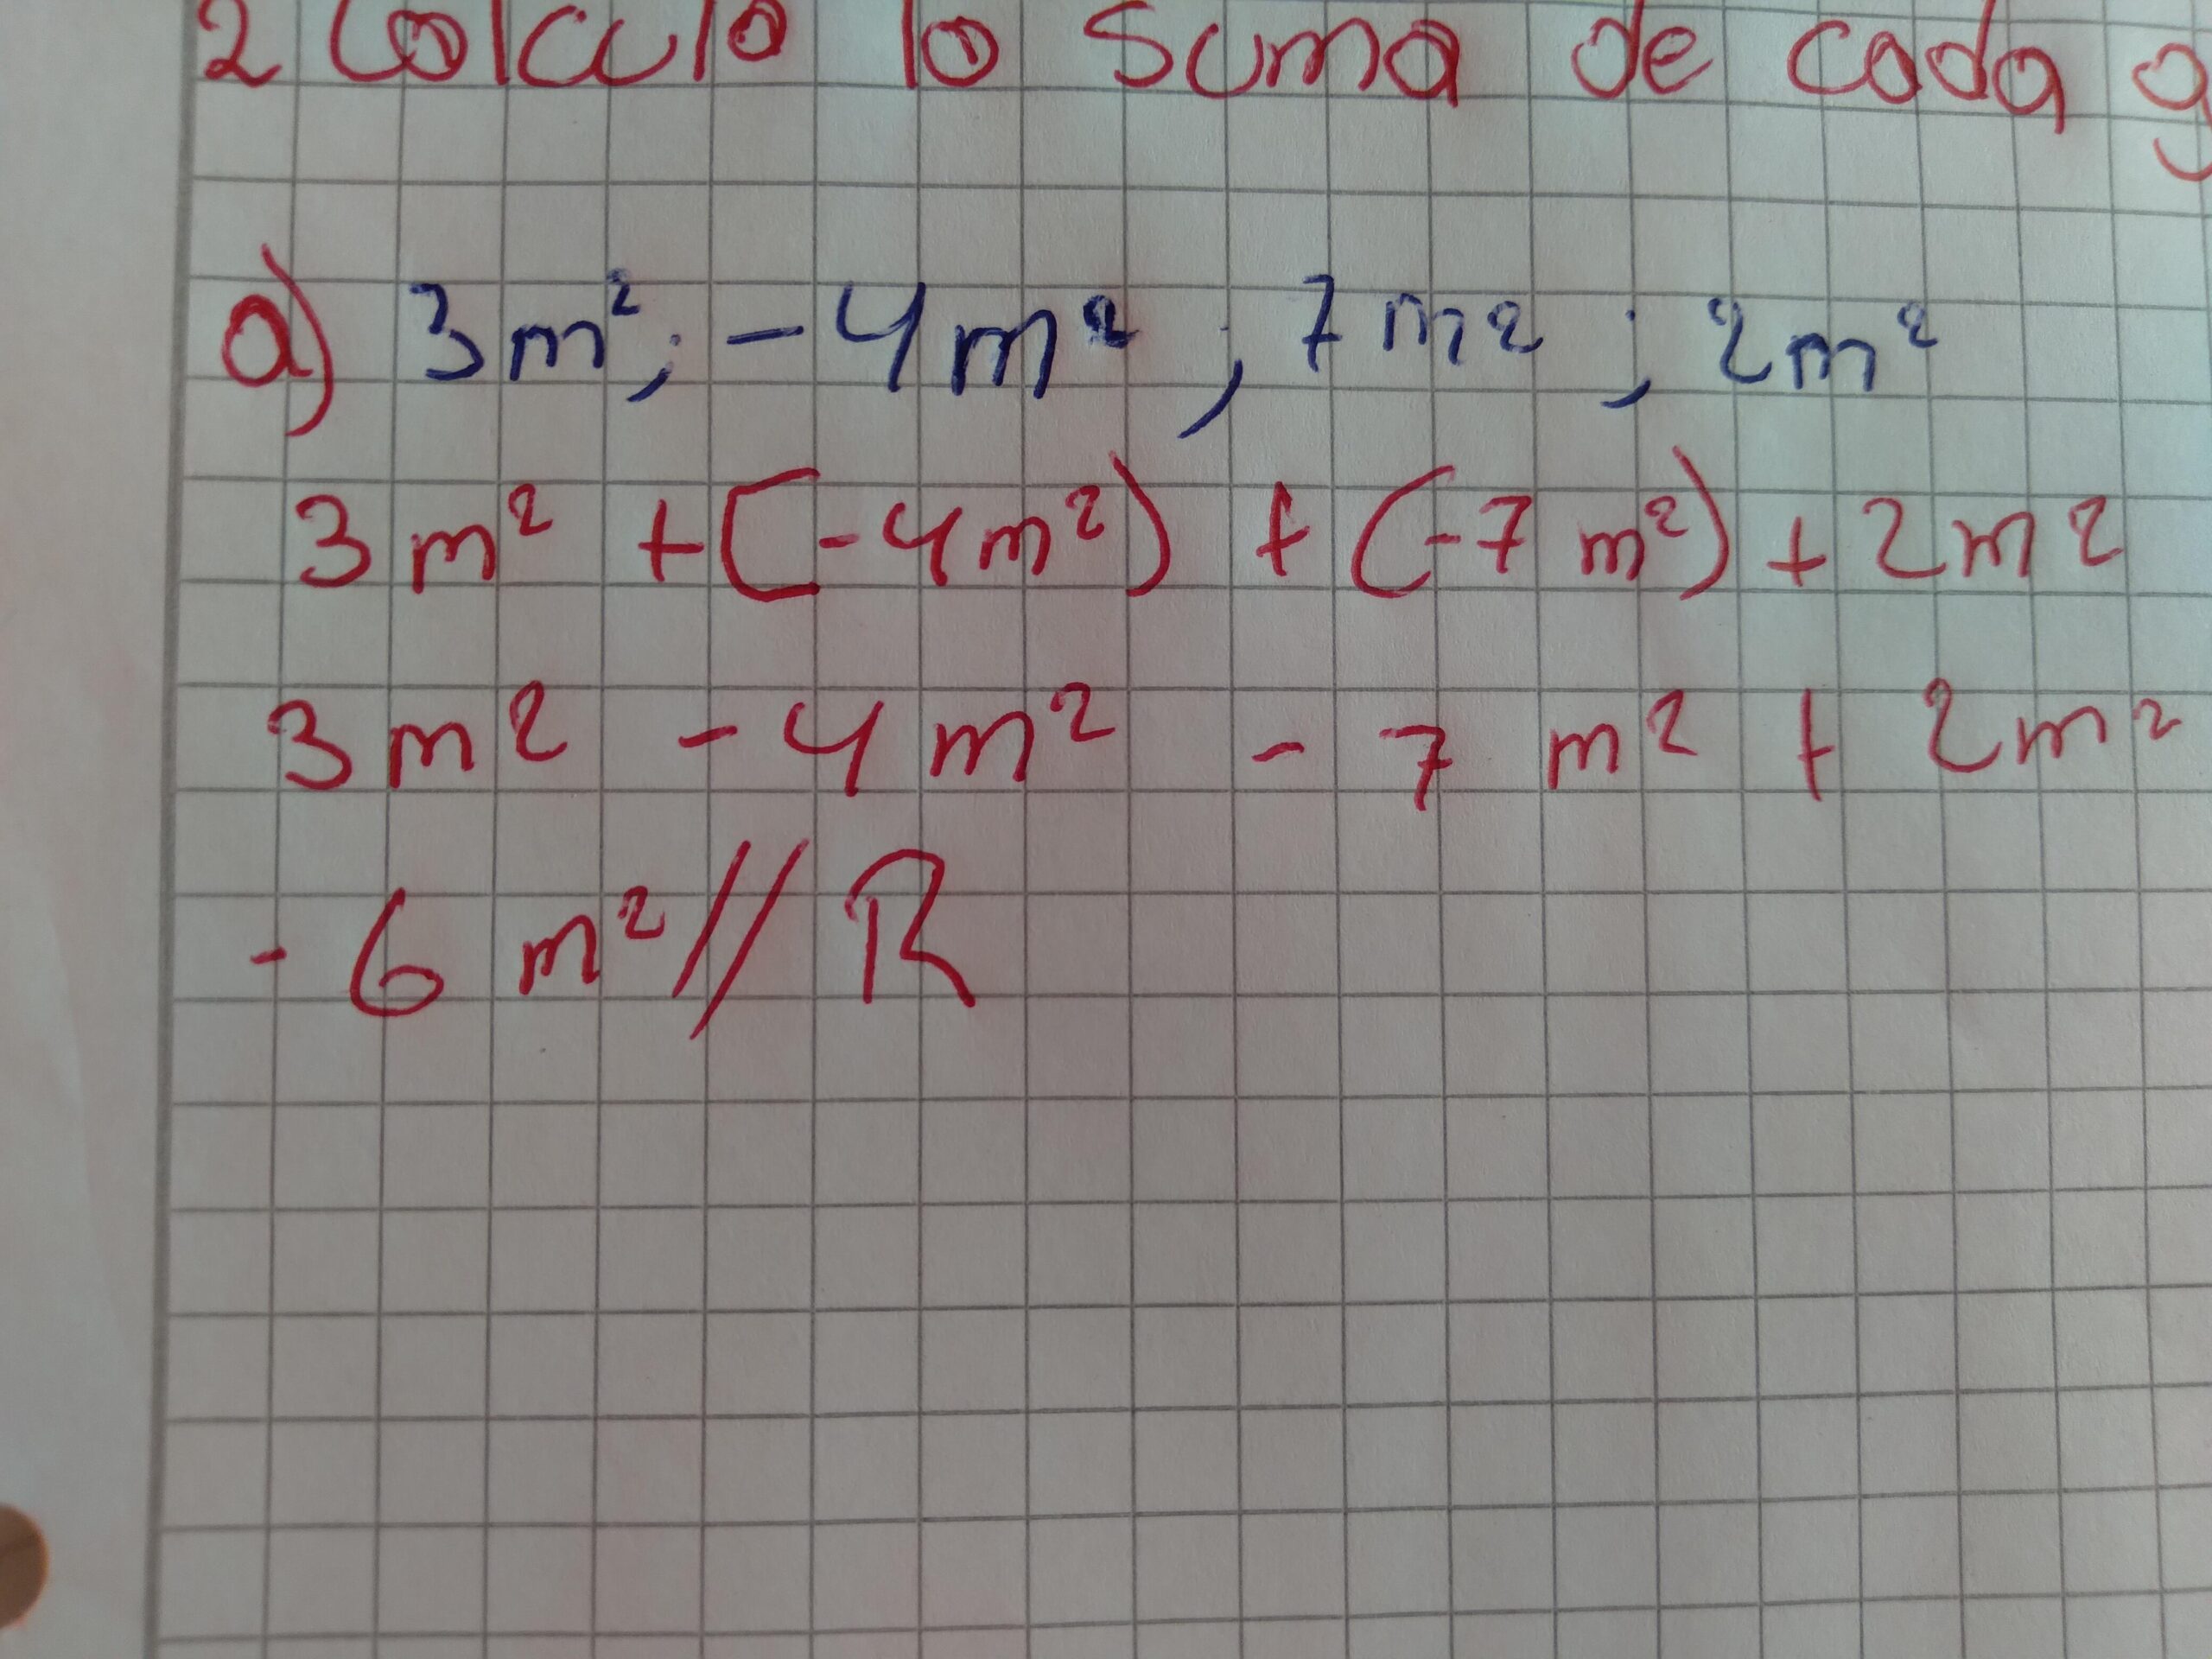 2 Calculo la suma de cada g
a) 3m²; -4m² ; 7m² ; 2m²
3m² + (-4m²) + (-7m²) + 2m²
3m² - 4m² - 7m² + 2m²
- 6 m² // R